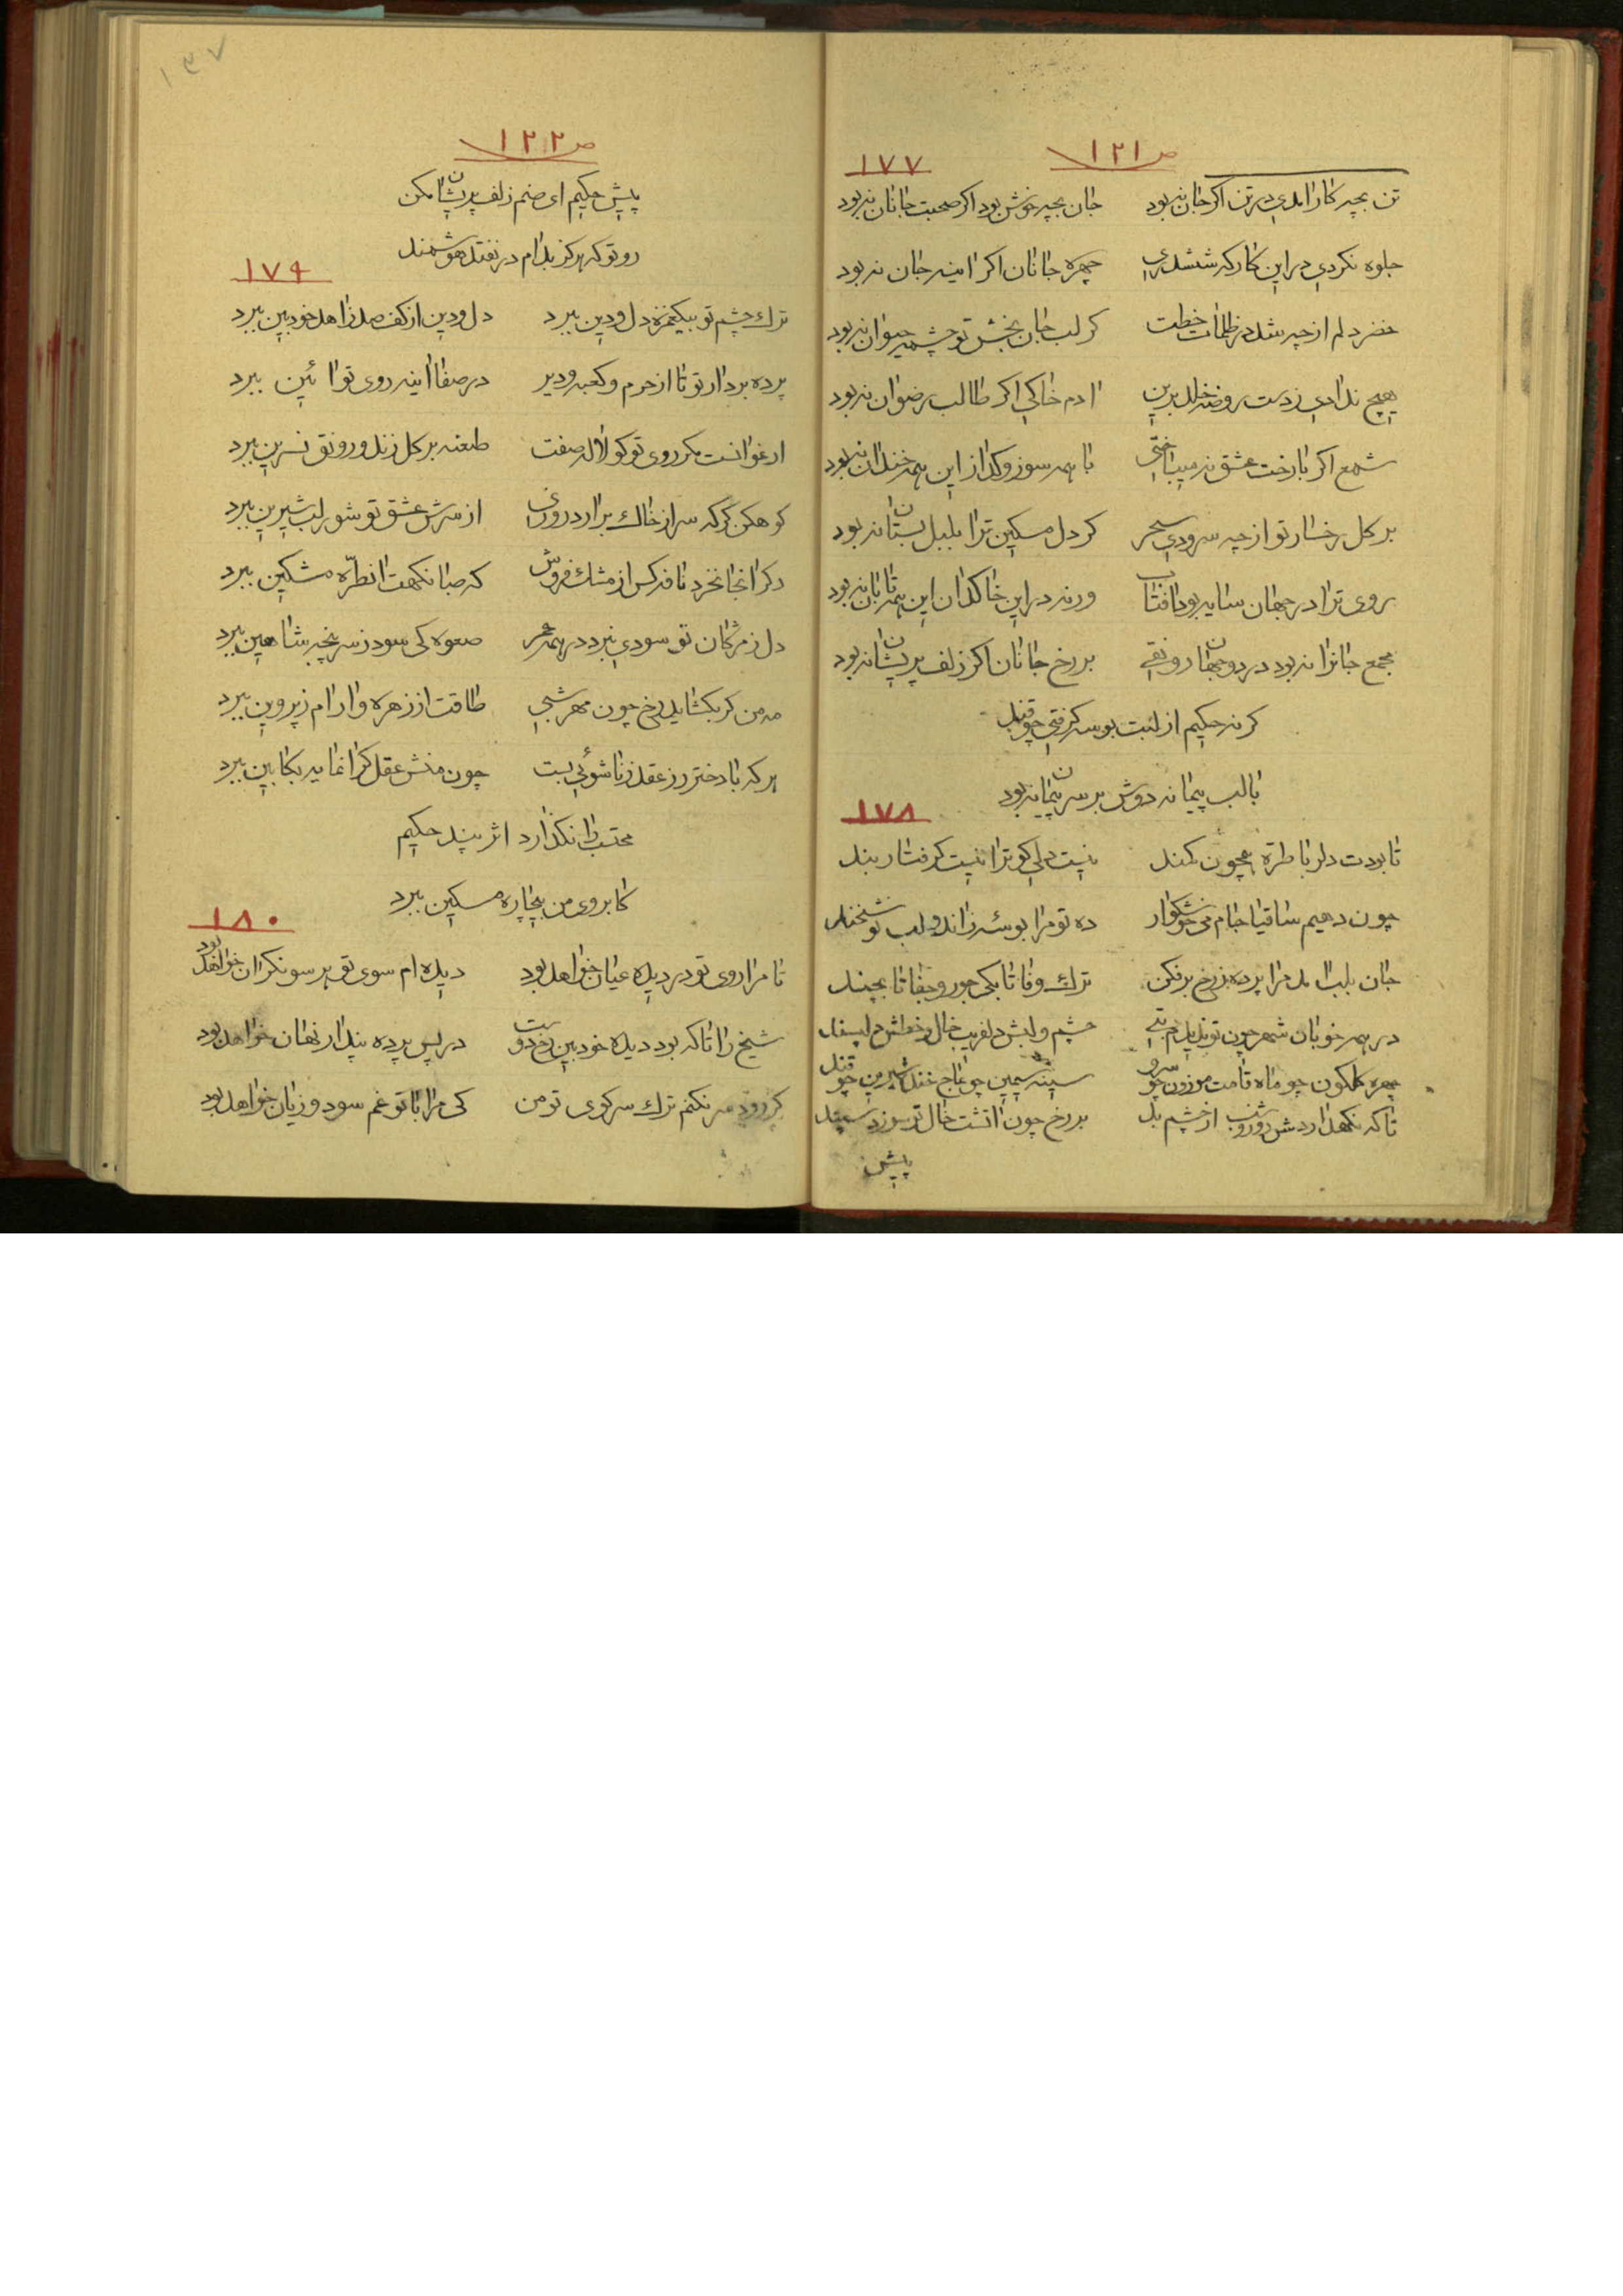 ص ١٢١
١٧٧
تن بچه کار آمدی در تن اگر جان نبود جان بچه خوش بود اگر صحبت جانان نبود
جلوه نکردی در این کارکه ششدری چهره جانان اگر اینه جان نبود
خضر دلم از چه شد در ظلمات خطت کر لب جان بخش تو چشمه حیوان نبود
هیچ ندادی ز دست روضه خلد برین ادم خاکی اکر طالب رضوان نبود
شمع اکر بار رخت عشق نه میباختی با همه سوز و کداز این همه خندان نبود
بر کل رخسار تو از چه سرودی سحر کر دل مسکین ترا بلبل بستان نبود
روی ترا در جهان سایه بود افتاب ورنه در این خاکدان این همه تابان نبود
مجمع جانرا نبود در دو جهان رونقی بر رخ جانان اکر زلف پریشان نبود
کر نه حکیم از لبت بوسه کرفتی چو قند
با لب پیمانه دوش بر سر پیمان نبود
١٧٨
تا بودت دلربا طره همچون کمند نیست دلی کو ترا نیست کرفتار بند
چون دهیم ساقیا جام می خوشکوار ده تو مرا بوسه زاندو لب نوشخند
جان بلب امد مرا پرده ز رخ برفکن ترک وفا تا بکی جور و جفا تا بچند
در همه خوبان شهر چون تو ندیدم بتی چشم و لبش دلفریب خال و خطش دلپسند
چهره کلکون چو ماه قامت موزون چو سرو سینه سیمین چو عاج خنده شیرین چو قند
تا که نکهداردش روز و شب از چشم بد بر رخ چون اتشت خال تو سوزد سپند
پیش
١٣٧
ص ١٢٢
پیش حکیم ای صنم زلف پریشان مکن
رو تو که هرکز بدام در نفتد هوشمند
١٧٩
ترک چشم تو بیکغمزه دل و دین ببرد دل و دین از کف صد زاهد خودبین ببرد
پرده بردار تو تا از حرم و کعبه و دیر در صفا اینه روی تو ائین ببرد
ارغوانست مکر روی تو کو لاله صفت طعنه بر کل زند و رونق نسرین ببرد
کوهکن کر که سر از خاک برارد روزی از سرش عشق تو شور لب شیرین ببرد
دکر انجا نخرد نافه کس از مشک فروش که صبا نکهت انطره مشکین ببرد
دل ز مژکان تو سودی نبرد در همه عمر صعوه کی سود ز سر پنجه شاهین ببرد
مه من کر بکشاید رخ چون مهر شبی طاقت از زهره و ارام ز پروین ببرد
هر که با دختر رز عقد زناشوئی بست چون منش عقل کرانمایه بکابین ببرد
محتسب را نکذارد اثر پند حکیم
کابروی من بیچاره مسکین ببرد
١٨٠
تا مرا روی تو در دیده عیان خواهد بود دیده ام سوی تو هر سو نکران خواهد بود
شیخ را تا که بود دیده خودبین رخ دوست در پس پرده پندار نهان خواهد بود
کر رود سر نکنم ترک سر کوی تو من کی مرا با تو غم سود و زیان خواهد بود